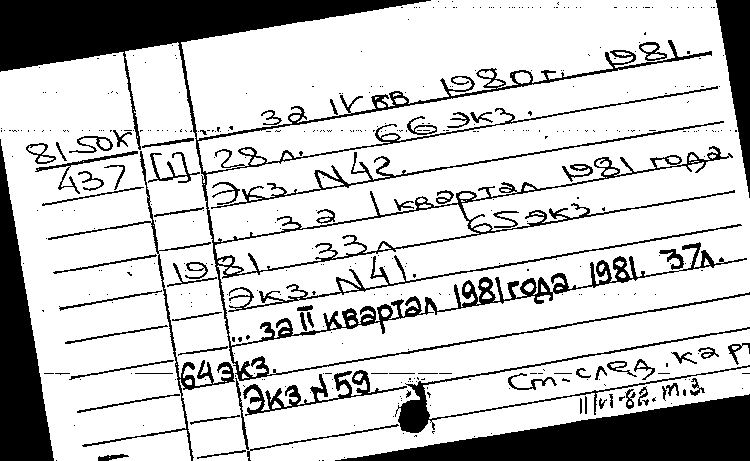 ... за IV кв. 1980 г. 1981.
81-50к
437
[1] 28 л. 66 экз.
Экз. N 42.
... за I квартал 1981 года.
1981. 33 л 65 экз.
Экз. N 41.
... за II квартал 1981 года. 1981. 37 л.
64 экз.
Экз. N 59.
Ст. след. карт